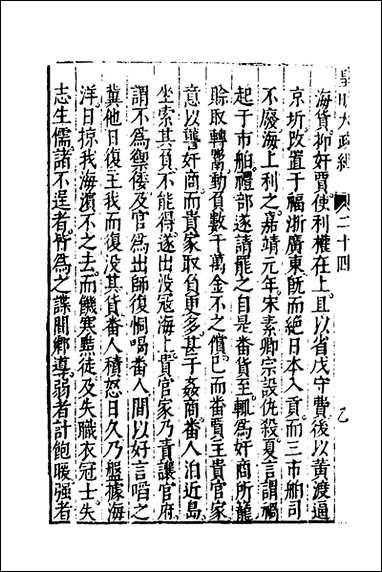 皇明大政紀 卷二十四 乙
海貨抑奸賈使利權在上且以省戍守費後以黃渡逼
京圻改置于福浙廣東旣而絕日本入貢而三市舶司
不廢海上利之嘉靖元年宋素卿宗設仇殺夏言謂禍
起于市舶禮部遂請罷之自是番貨至輒爲奸商所籠
賒取轉鬻動負數千萬金不之償已而番賈主貴官家
意以讐奸商而貴家取負更多甚于奸商番人泊近島
坐索其負不能得遂出没冦海上貴官家乃責讓官府
謂不爲禦倭及官爲出師復恫喝番人間以好言啗之
兾他日復主我而復没其貨番人積怒日久乃盤據海
洋日掠我海濵不之去而饑寒黠徒及失職衣冠士失
志生儒諸不逞者皆爲之諜間鄉導弱者計飽暖强者